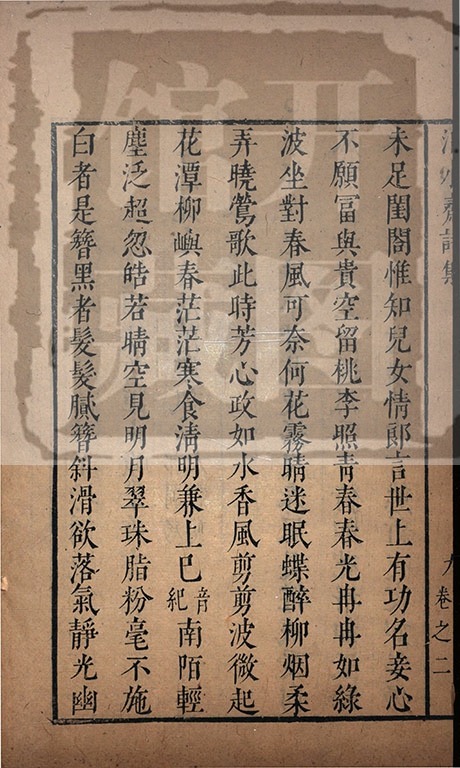 未足閨閤惟知兒女情郎言世上有功名妾心
不願冨與貴空留桃李照青春春光冉冉如綠
波坐對春風可奈何花霧晴迷眠蝶醉柳烟柔
弄曉鶯歌此時芳心政如水香風剪剪波微起
花潭柳嶼春茫茫寒食淸明兼上巳音紀南陌輕
塵泛超忽皓若晴空見明月翠珠脂粉毫不施
白者是簪黑者髮髮膩簪斜滑欲落氣靜光幽
卷之二